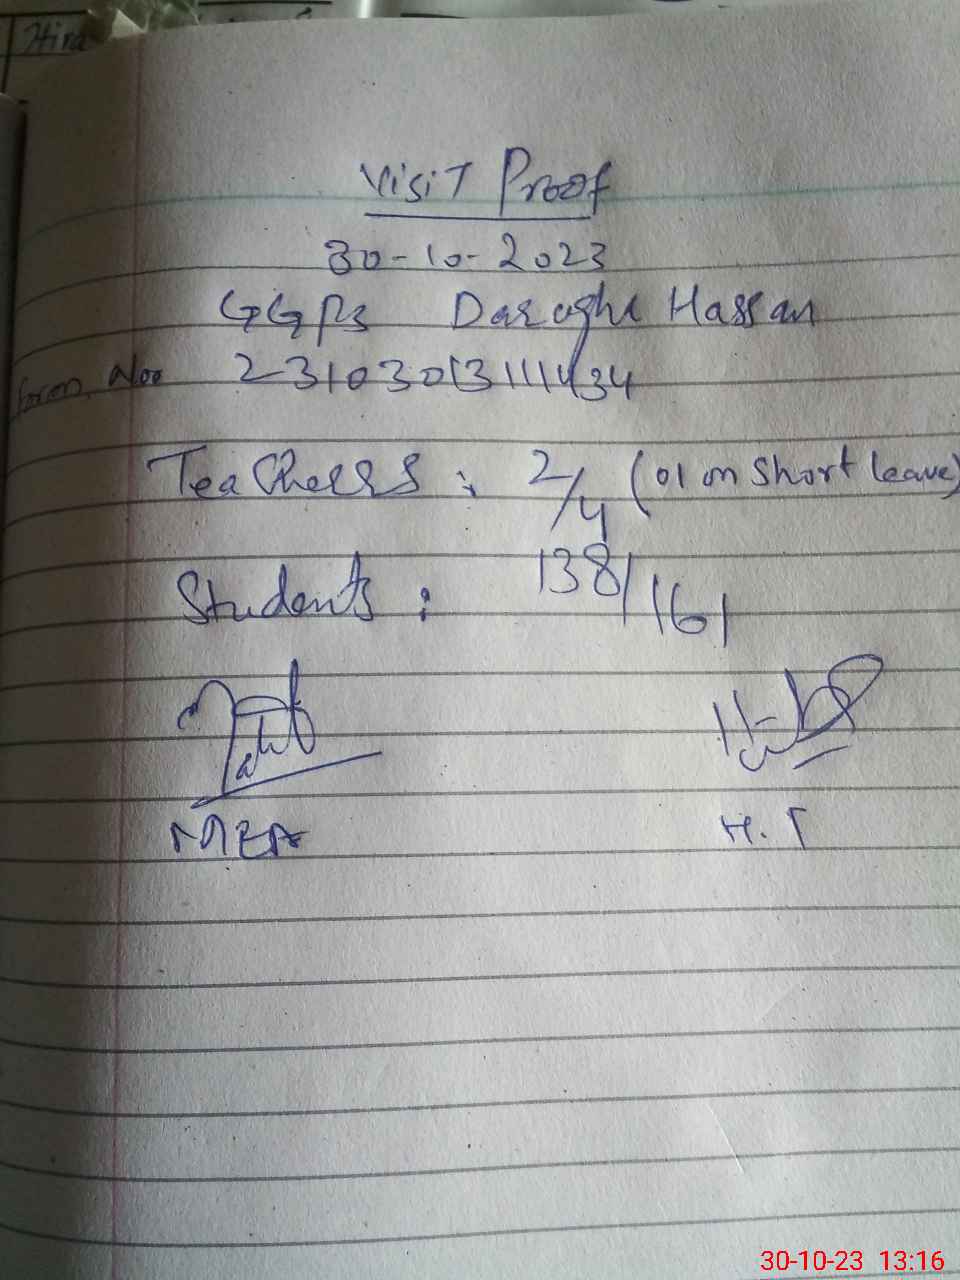 Hira
Visit Proof
30-10-2023
GGPS Daraghe Hassan
form Noo 23103013111434
Teachers : 2/4 (01 on Short leave)
Students : 138/161
MEA H.T
30-10-23 13:16